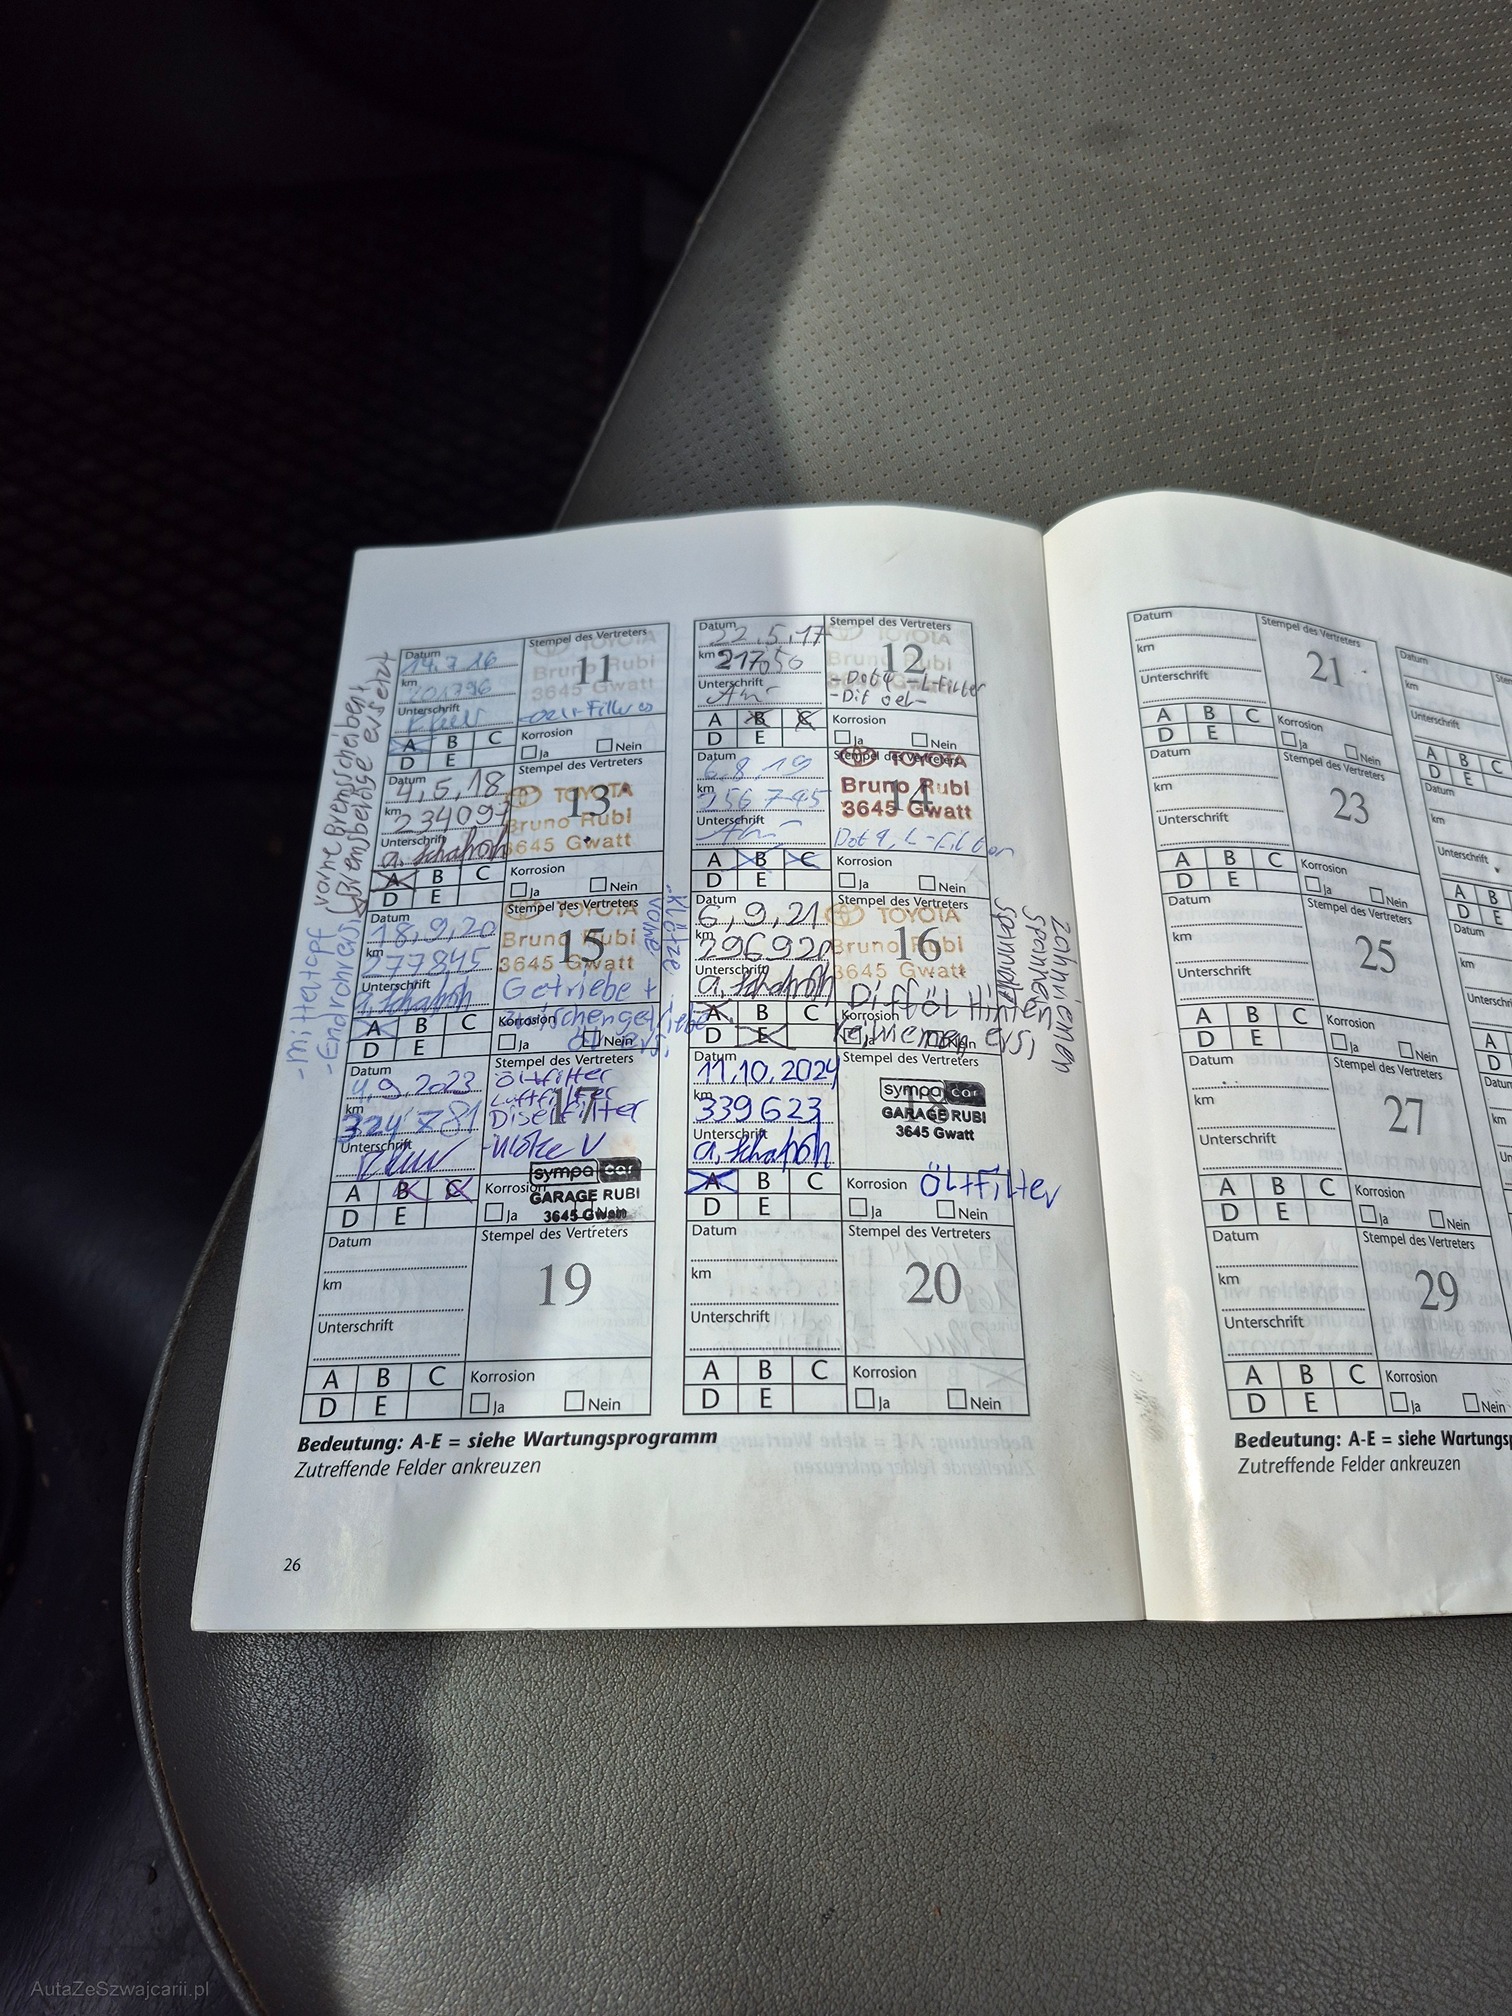 Datum
14.7.16
km
201796
Unterschrift
Stempel des Vertreters
TOYOTA
Bruno Rubi
3645 Gwatt
11
A B C
D E
Korrosion
Ja Nein
Datum
22.5.17
km 217050
Unterschrift
Stempel des Vertreters
TOYOTA
Bruno Rubi
3645 Gwatt
12
-Dot4 -L-Filter
-Dif oel-
A B C
D E
Korrosion
Ja Nein
Datum
4,5,18
km
234097
Unterschrift
Stempel des Vertreters
TOYOTA
Bruno Rubi
3645 Gwatt
13
A B C
D E
Korrosion
Ja Nein
vorne Bremscheiben
-Mitteltopf
-Endrohr
6.8.19
km
256745
Unterschrift
Stempel des Vertreters
TOYOTA
Bruno Rubi
3645 Gwatt
14
Dot 4, L-Filter
A B C
D E
Korrosion
Ja Nein
Datum
18,9,20
km
277845
Unterschrift
Stempel des Vertreters
TOYOTA
Bruno Rubi
3645 Gwatt
15
Getriebe +
A B C
D E
Korrosion
Ja Nein
Klötze
vorne
6,9,21
km
296920
Unterschrift
Stempel des Vertreters
TOYOTA
Bruno Rubi
3645 Gwatt
16
Difföl Hinten
A B C
D E
Korrosion
Datum
4,9,2023
km
324781
Unterschrift
Stempel des Vertreters
17
Ölfilter
Luftfilter
Diselfilter
sympa car
GARAGE RUBI
3645 Gwatt
A B C
D E
Korrosion
Ja
Datum
11.10.2024
km
339623
Unterschrift
Stempel des Vertreters
sympa car
GARAGE RUBI
3645 Gwatt
A B C
D E
Korrosion
Ölfilter
Ja Nein
Datum
km
Unterschrift
Stempel des Vertreters
19
A B C
D E
Korrosion
Ja Nein
Datum
km
Unterschrift
Stempel des Vertreters
20
A B C
D E
Korrosion
Ja Nein
Bedeutung: A-E = siehe Wartungsprogramm
Zutreffende Felder ankreuzen
26
Datum
km
Unterschrift
Stempel des Vertreters
21
A B C
D E
Korrosion
Ja Nein
Datum
km
Unterschrift
Stempel des Vertreters
23
A B C
D E
Korrosion
Ja Nein
Datum
km
Unterschrift
Stempel des Vertreters
25
A B C
D E
Korrosion
Ja Nein
Datum
km
Unterschrift
Stempel des Vertreters
27
A B C
D E
Korrosion
Ja Nein
Datum
km
Unterschrift
Stempel des Vertreters
29
A B C
D E
Korrosion
Ja Nein
Bedeutung: A-E = siehe Wartungsp
Zutreffende Felder ankreuzen
AutaZeSzwajcarii.pl